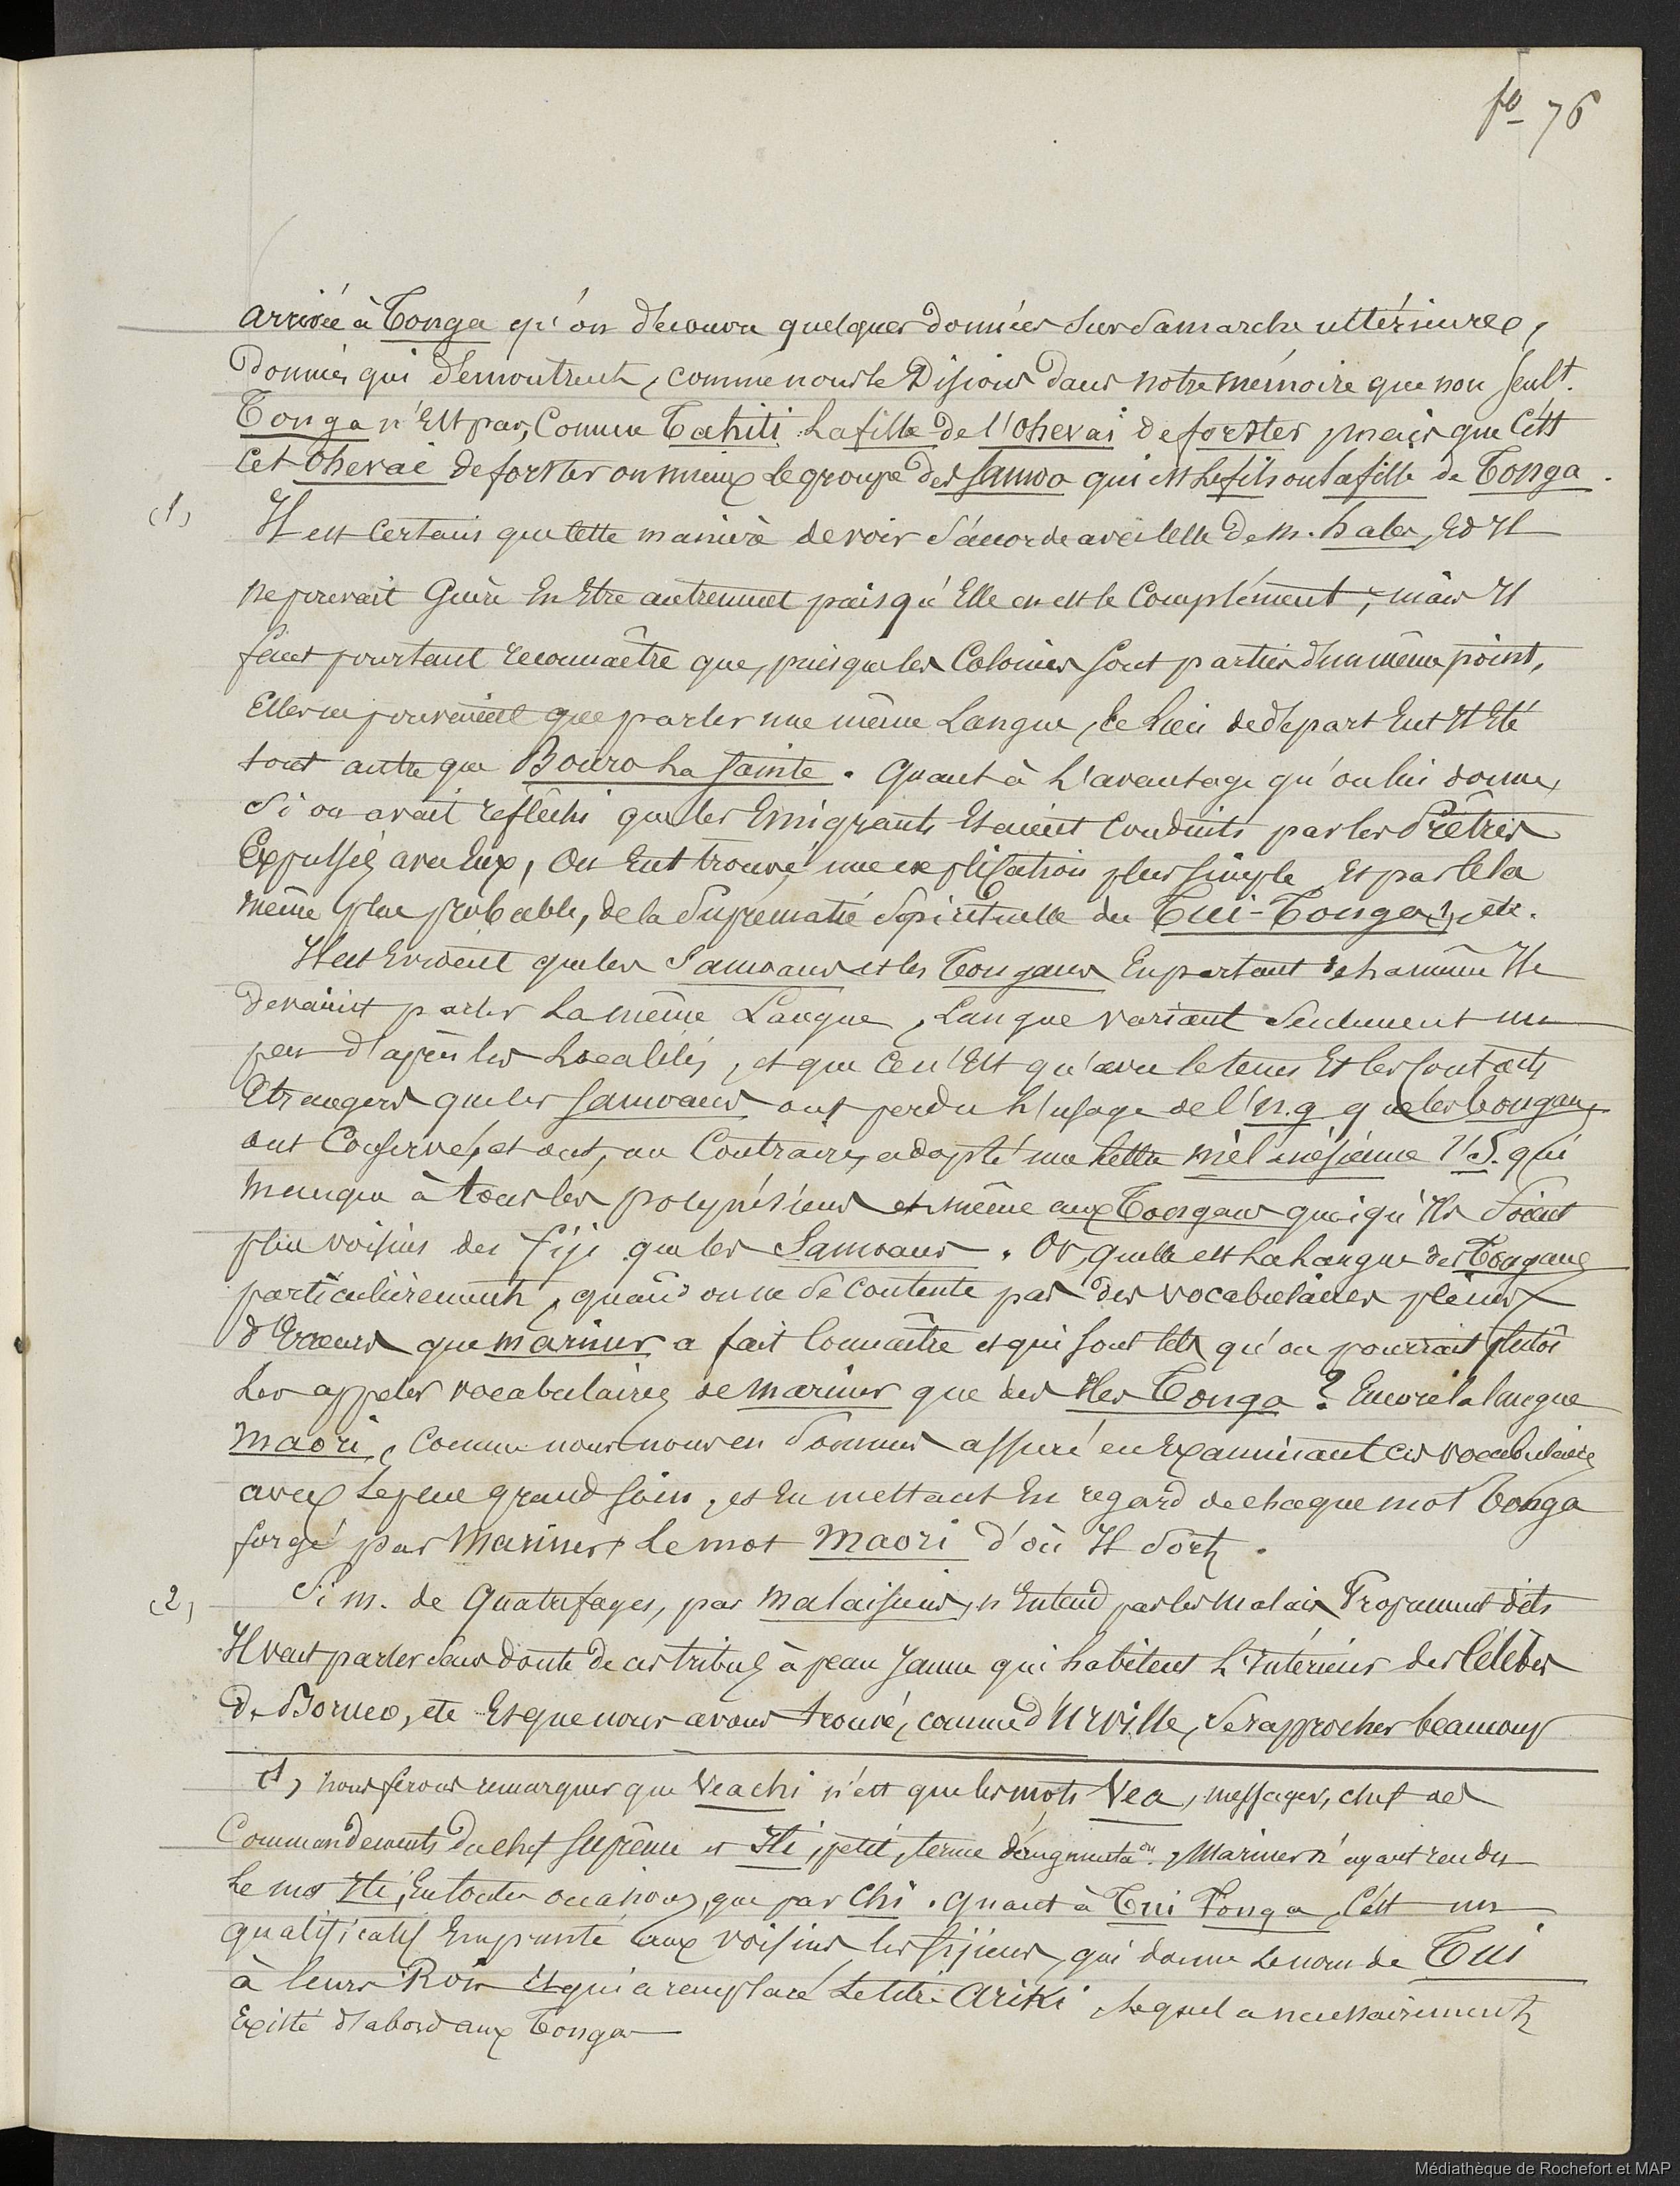 fo 76
arrivée à Tonga qu'on découvre quelques données sur sa marche ultérieure,
Données qui démontrent, comme nous le Disions dans notre mémoire que non seult.
Tonga n'Est pas, Comme Tahiti La fille de l'Ohevai de forster, mais que C'est
Cet Ohevai de forster ou mieux Le groupe des Samoa qui est Le fils ou La fille de Tonga.
(1) Il est Certain que Cette manière de voir s'accorde avec Celle De M. hales, Et Il
ne pouvait Guère En Etre autrement puisqu'Elle en est le Complément ; mais Il
faut pourtant reconnaître que, puisque les Colonies sont parties d'un même point,
Elles ne pouvaient que parler une même Langue, Ce Lieu de départ Eut Il Eté
tout autre que Bouro La Sainte. Quant à L'avantage qu'on lui donne,
Si on avait refléchi que les Emigrants Etaient Conduits par les Prêtres
Expulsés avec Eux, On Eut trouvé une explication plus simple et par Cela
même plus probable, de la Suprematie Spirituelle du Tui-Tonga (1), etc.
Il est Evident que les Samoans et les Tongans En partant de La même Ile
devaient parler La même Langue, Langue variant Seulement un
peu d'après les Localités, et que Ce n'Est qu'avec le tems Et les Contacts
Etrangers que les Samoans ont perdu L'usage de l'n.g que les Tongans
ont Conservé, et ont, au Contraire, adopté une Lettre mélanésienne l'S. qui
manque à tous les polynésiens et même aux Tongans quoiqu'Ils soient
plus voisins des fiji que les Samoans. Or, quelle est La Langue des Tongans
particulièrement, quand on ne se contente pas des vocabulaires pleins
d'Erreurs que mariner a fait Connaître et qui sont tels qu'on pourrait plutôt
Les appeler vocabulaires de mariner que des Iles Tonga ? Encore la langue
Maori, Comme nous nous en sommes assuré en Examinant ces vocabulaires
avec Le plus grand soin, et En mettant En regard de chaque mot Tonga
forgé par Mariner Le mot Maori d'où Il Sort.
(2) Si M. de Quatrefages, par malaisiens, n'Entend pas les malais Proprement dits
Il veut parler sans doute de ces tribus à peau Jaune qui habitent L'Intérieur des Célèbes
De Borneo, etc Et que nous avons trouvé, comme d'Urville, Se rapprocher beaucoup
(1) nous ferons remarquer que Veachi n'est que les mots Vea, messager, chef des
Commandements du chef Suprême et Iti, petit, terme d'augmentaon, Mariner n'ayant rendu
Le mot Iti, En toutes occasions, que par Chi. Quant à Tui Tonga, C'est un
qualificatif Emprunté aux voisins les fijiens, qui donne Le nom de Tui
à leurs Rois Et qui a remplacé Le titre Ariki Lequel a nécessairement
Existé d'abord aux Tonga
Médiathèque de Rochefort et MAP